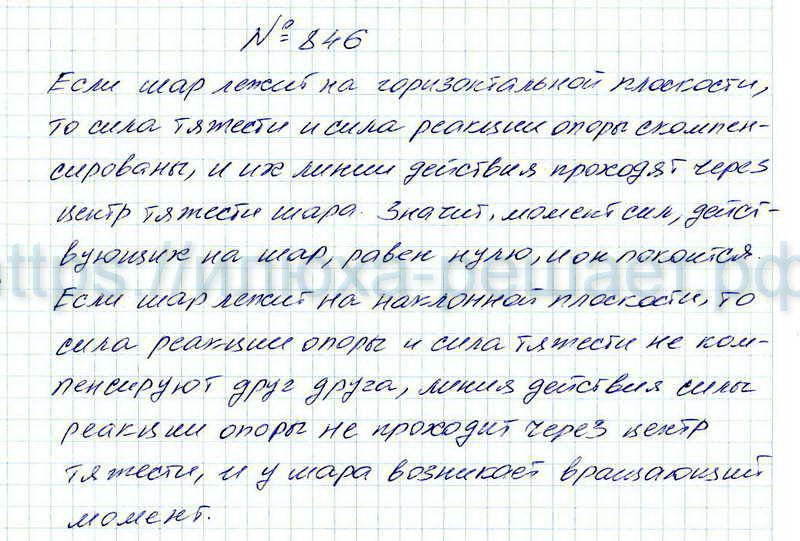 № 846
Если шар лежит на горизонтальной плоскости,
то сила тяжести и сила реакции опоры скомпен-
сированы, и их линии действия проходят через
центр тяжести шара. Значит, момент сил, дейст-
вующих на шар, равен нулю, и он покоится.
https://илюха-решает.рф
Если шар лежит на наклонной плоскости, то
сила реакции опоры и сила тяжести не ком-
пенсируют друг друга, линия действия силы
реакции опоры не проходит через центр
тяжести, и у шара возникает вращающий
момент.